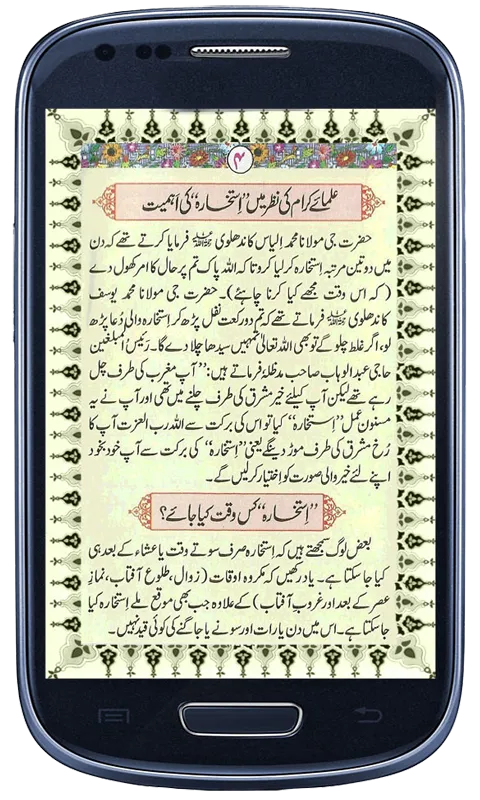 ۴
علمائے کرام کی نظر میں ”اِستخارہ“ کی اہمیت
حضرت جی مولانا محمد الیاس کاندھلوی فرمایا کرتے تھے کہ دن
میں دو تین مرتبہ اِستخارہ کر لیا کرو تاکہ اللہ پاک تم پر حال کا امر کھول دے
(کہ اس وقت مجھے کیا کرنا چاہئے)۔ حضرت جی مولانا محمد یوسف
کاندھلوی فرماتے تھے کہ تم دو رکعت نفل پڑھ کر اِستخارہ والی دُعا پڑھ
لو، اگر غلط چلو گے تو بھی اللہ تعالیٰ تمہیں سیدھا چلا دے گا۔ رئیس المبلغین
حاجی عبدالوہاب صاحب مدظلہٗ فرماتے ہیں: ”آپ مغرب کی طرف چل
رہے تھے لیکن آپ کیلئے خیر مشرق کی طرف چلنے میں تھی اور آپ نے یہ
مسنون عمل ”اِستخارہ“ کیا تو اس کی برکت سے اللہ رب العزت آپ کا
رُخ مشرق کی طرف موڑ دینگے یعنی ”اِستخارہ“ کی برکت سے آپ خود بخود
اپنے لئے خیر والی صورت کو اختیار کر لیں گے۔
”اِستخارہ“ کس وقت کیا جائے؟
بعض لوگ سمجھتے ہیں کہ اِستخارہ صرف سوتے وقت یا عشاء کے بعد ہی
کیا جاسکتا ہے۔ یاد رکھیں کہ مکروہ اوقات (زوال، طلوع آفتاب، نمازِ
عصر کے بعد اور غروبِ آفتاب) کے علاوہ جب بھی موقع ملے اِستخارہ کیا
جاسکتا ہے۔ اس میں دن یا رات اور سونے یا جاگنے کی کوئی قید نہیں۔